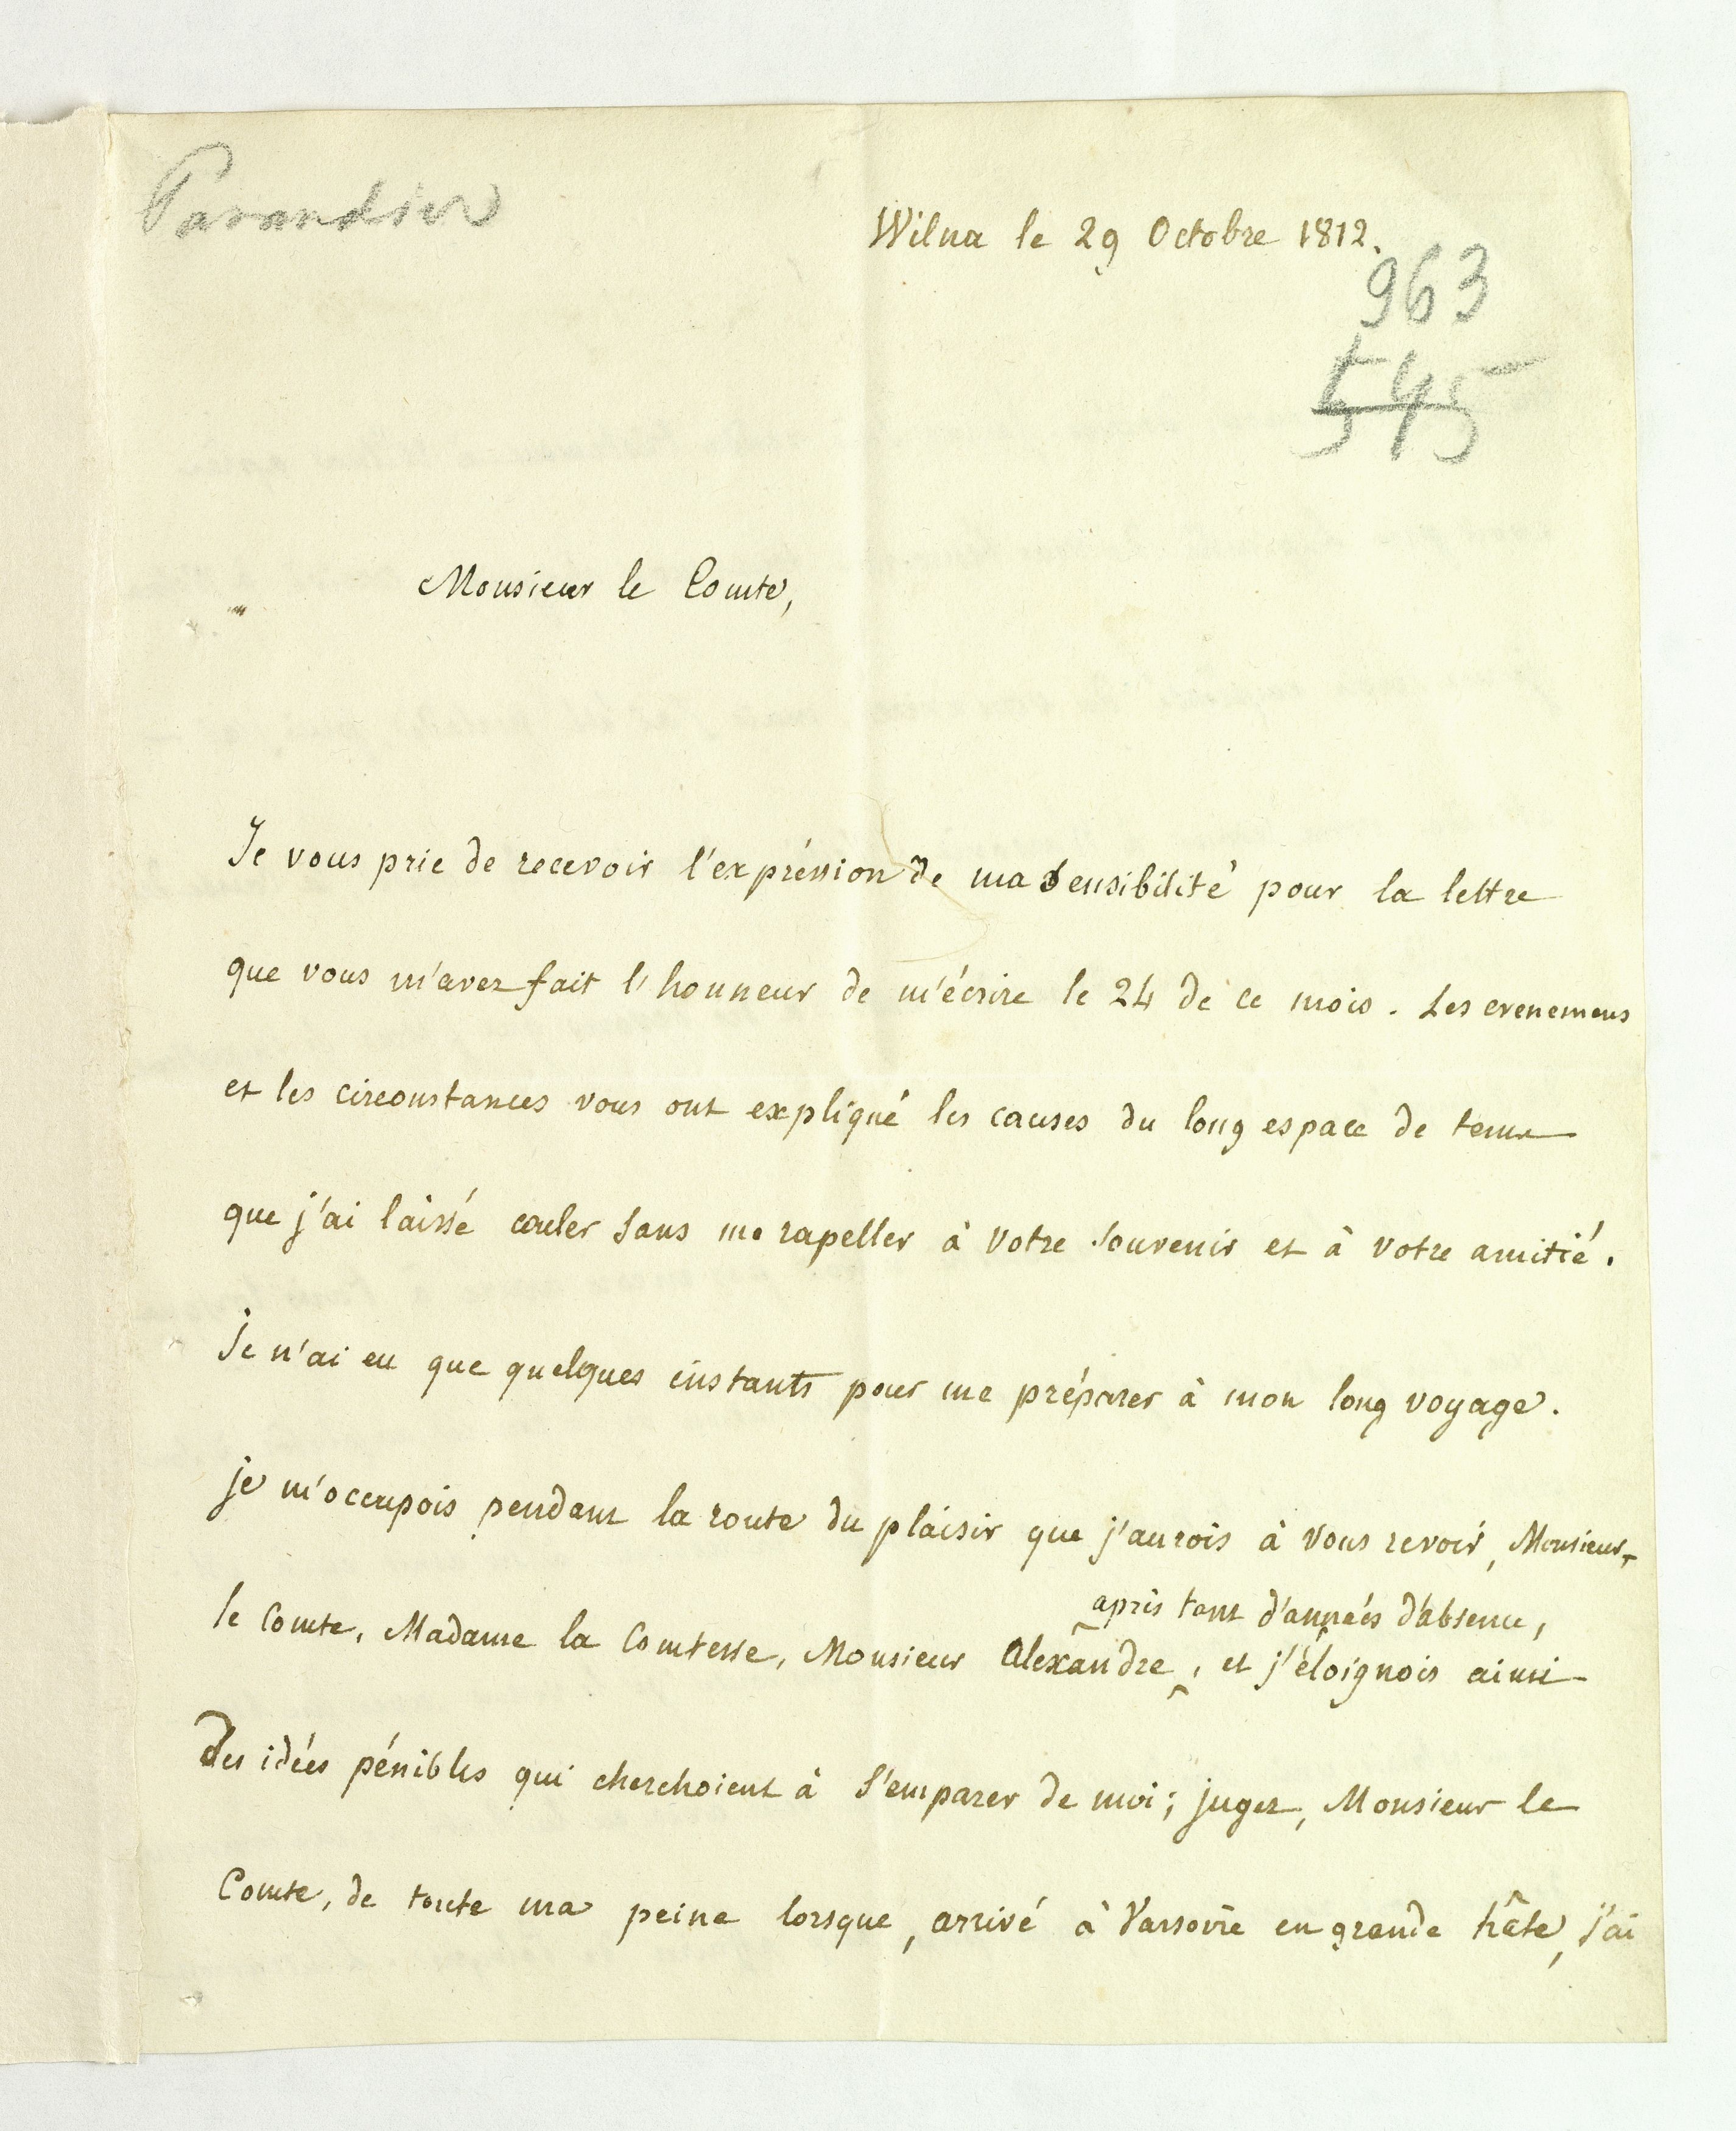 Parandier
Wilna le 29 Octobre 1812.
963
545
Monsieur le Comte,
Je vous prie de recevoir l'expréssion de ma Sensibilité pour la lettre
que vous m'avez fait l'honneur de m'écrire le 24 de ce mois. Les evenemens
et les circonstances vous ont expliqué les causes du long espace de tems
que j'ai laissé couler sans me rapeller à votre souvenir et à votre amitié.
Je n'ai eu que quelques instants pour me préparer à mon long voyage.
je m'occupois pendant la route du plaisir que j'aurois à vous revoir, Monsieur
après tant d'années d'absence,
le Comte, Madame la Comtesse, Monsieur Alexandre, et j'éloignois ainsi
des idées pénibles qui cherchoient à s'emparer de moi; jugez, Monsieur le
Comte, de toute ma peine lorsque, arrivé à Varsovie en grande hâte, j'ai